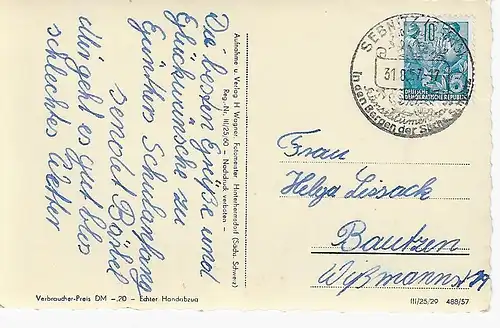 Die besten Grüße und
Glückwünsche zu
Günthers Schulanfang
sendet Bärbel
Mir geht es gut blos
schlechtes Wetter
Aufnahme u. Verlag H. Wagner, Fotomeister, Hinterhermsdorf (Sächs. Schweiz)
Reg.-Nr. III/25/60 – Nachdruck verboten –
SEBNITZ
31.8.57-17
In den Bergen der Sächs.
10
5
DEUTSCHE
DEMOKRATISCHE REPUBLIK
Frau
Helga Lissack
Bautzen
Wißmannstr 19
Verbraucher-Preis DM –,20 – Echter Handabzug
III/25/29 488/57